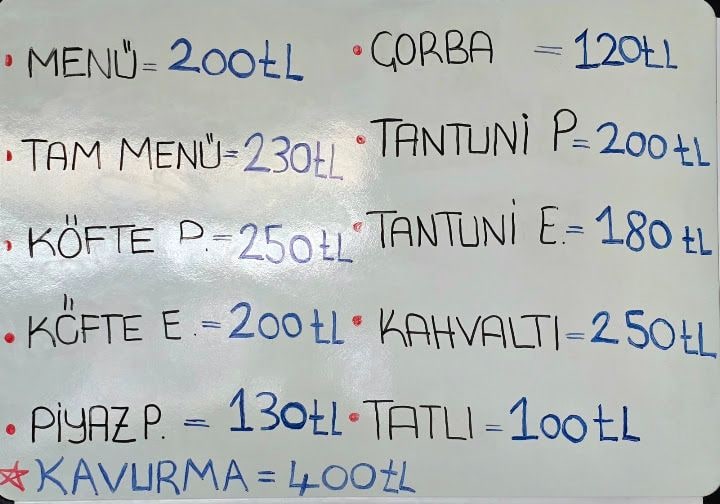 • MENÜ = 200tL
• TAM MENÜ = 230tL
• KÖFTE P. = 250tL
• KÖFTE E. = 200tL
• PİYAZ P. = 130tL
☆ KAVURMA = 400tL
• ÇORBA = 120tL
• TANTUNİ P = 200tL
• TANTUNİ E. = 180tL
• KAHVALTI = 250tL
• TATLI = 100tL